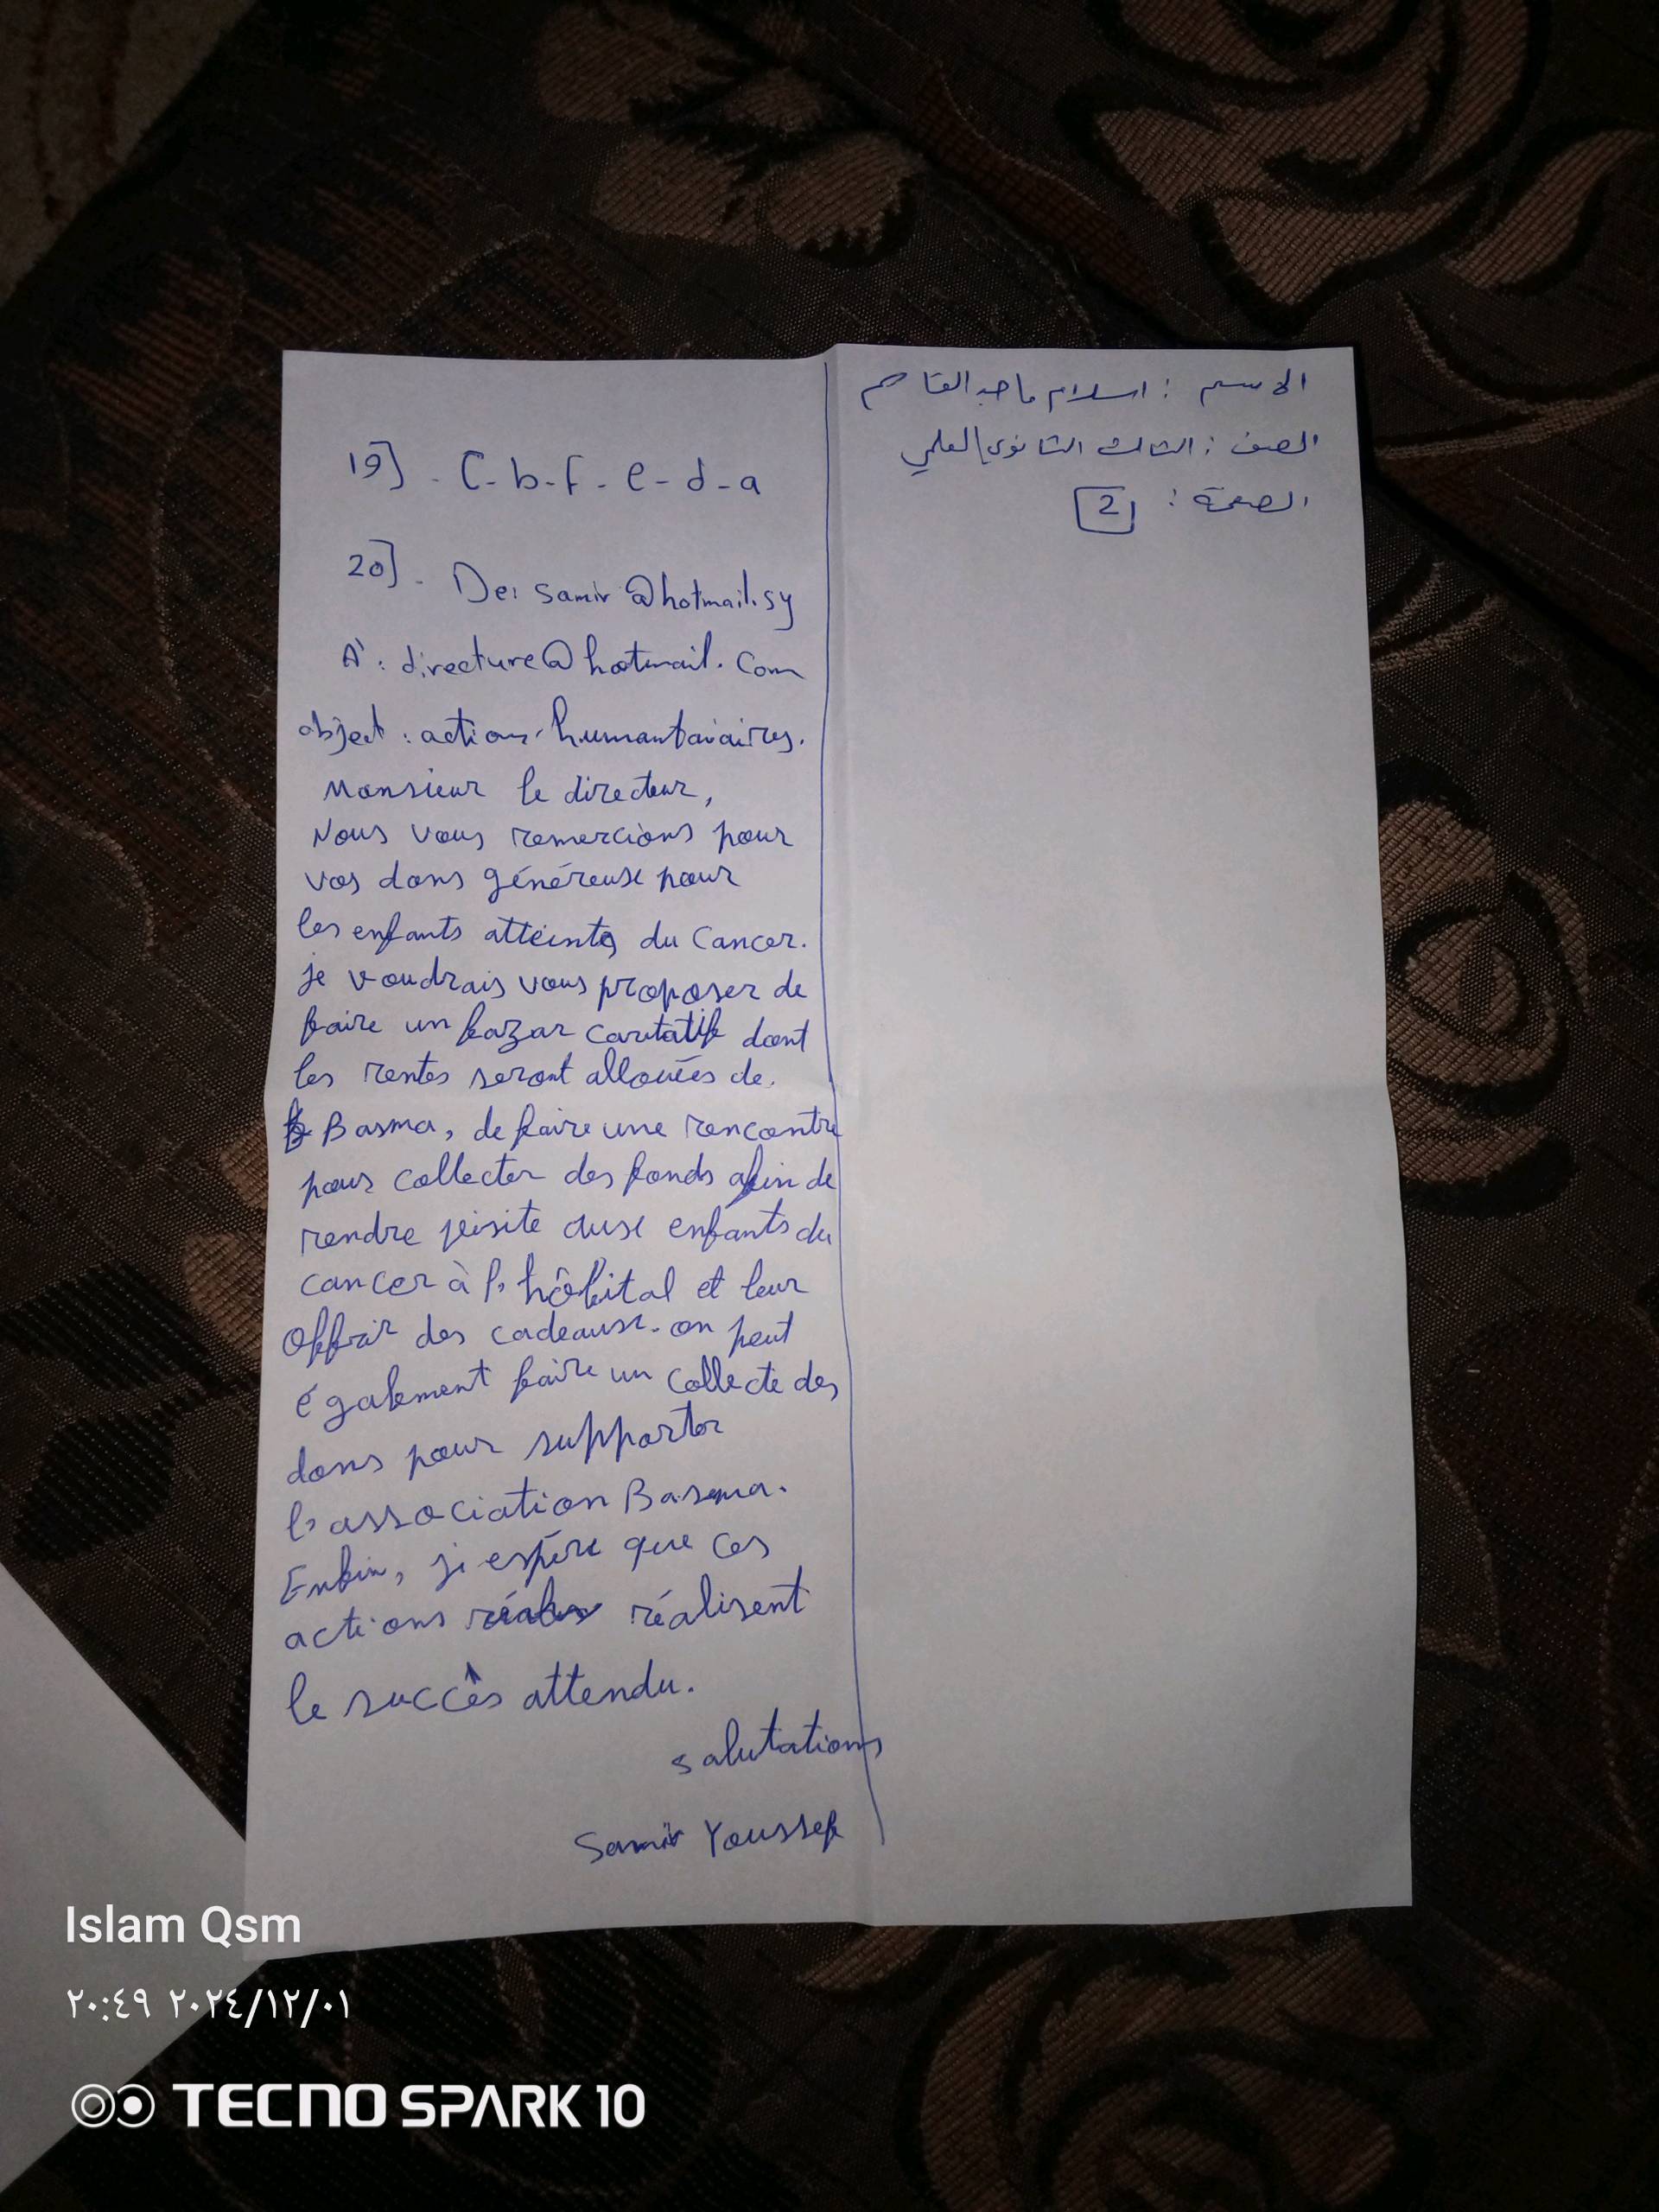 الاسم : اسلام ماجد القاسم
الصف : الثالث الثانوي العلمي
الصفحة : 2
19] - C - b - f - e - d - a
20] - De: samir@hotmail.sy
À : directure@hotmail.com
object : actions humanitaiaires.
Monsieur le directeur,
Nous vous remercions pour
vos dons généreuse pour
les enfants atteints du Cancer.
je voudrais vous proposer de
faire un bazar caritatif dont
les rentes seront allouées de
Basma, de faire une rencontre
pour collecter des fonds afin de
rendre visite aux enfants du
cancer à l'hôpital et leur
offrir des cadeaux. on peut
également faire un collecte des
dons pour supporter
l'association Basma.
Enfin, je espère que ces
actions réalisent
le succès attendu.
salutations
Samir Youssef
Islam Qsm
٢٠:٤٩ ٢٠٢٤/١٢/٠١
TECNO SPARK 10